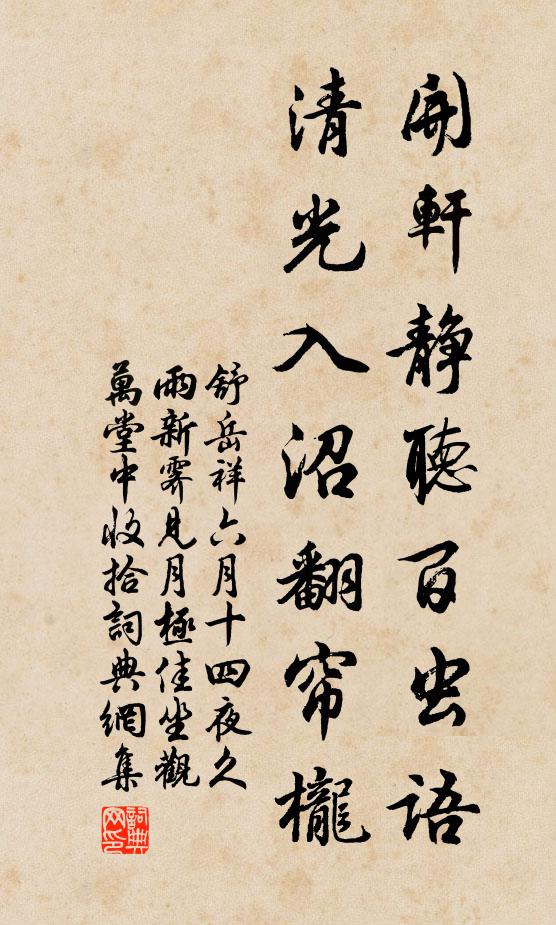 開軒靜聽百虫語
清光入沼翻帘櫳
舒岳祥六月十四夜久
雨新霽見月極佳坐觀
萬堂中收拾詞典網集
詞典网印